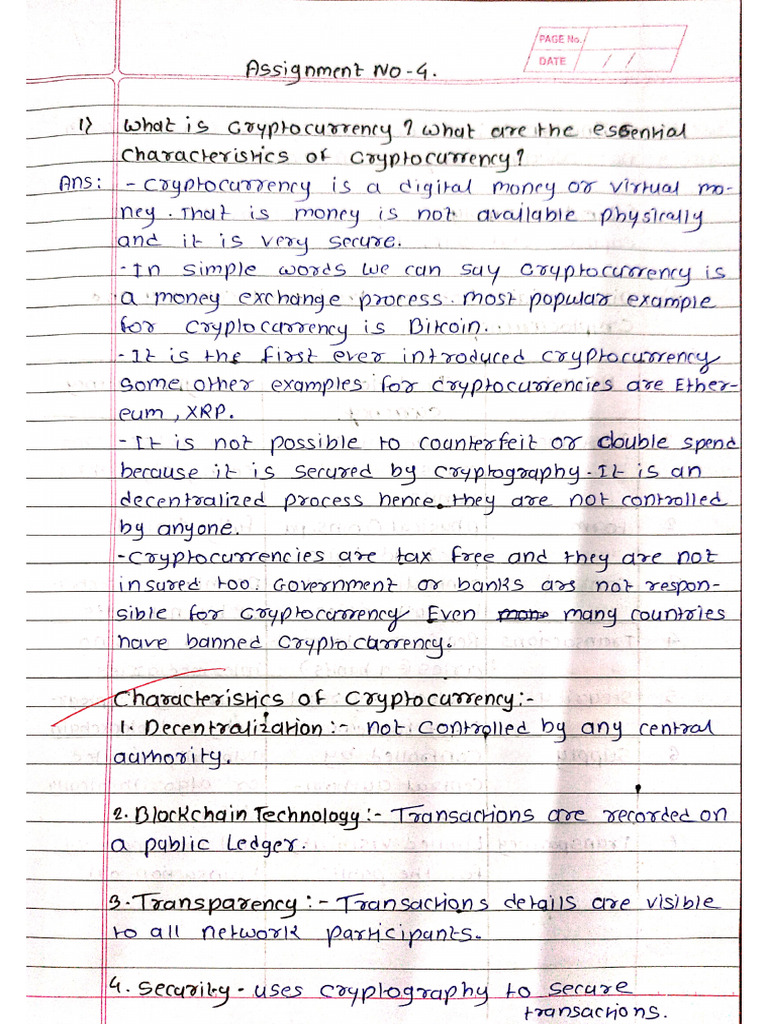 PAGE No.
DATE / /
Assignment No-4.
1) What is Cryptocurrency? What are the essential
Characteristics of Cryptocurrency?
Ans: - Cryptocurrency is a digital money or virtual mo-
ney. That is money is not available physically
and it is very secure.
- In simple words we can say cryptocurrency is
a money exchange process. most popular example
for cryptocurrency is Bitcoin.
- It is the first ever introduced cryptocurrency
some other examples for cryptocurrencies are Ether-
eum, XRP.
- It is not possible to counterfeit or double spend
because it is secured by cryptography. It is an
decentralized process hence they are not controlled
by anyone.
- Cryptocurrencies are tax free and they are not
insured too. Government or banks are not respon-
sible for cryptocurrency Even many countries
have banned cryptocurrency.
Characteristics of Cryptocurrency:-
1. Decentralization:- not controlled by any central
authority.
2. Blockchain Technology:- Transactions are recorded on
a public Ledger.
3. Transparency:- Transactions details are visible
to all network participants.
4. Security - uses cryptography to secure
transactions.